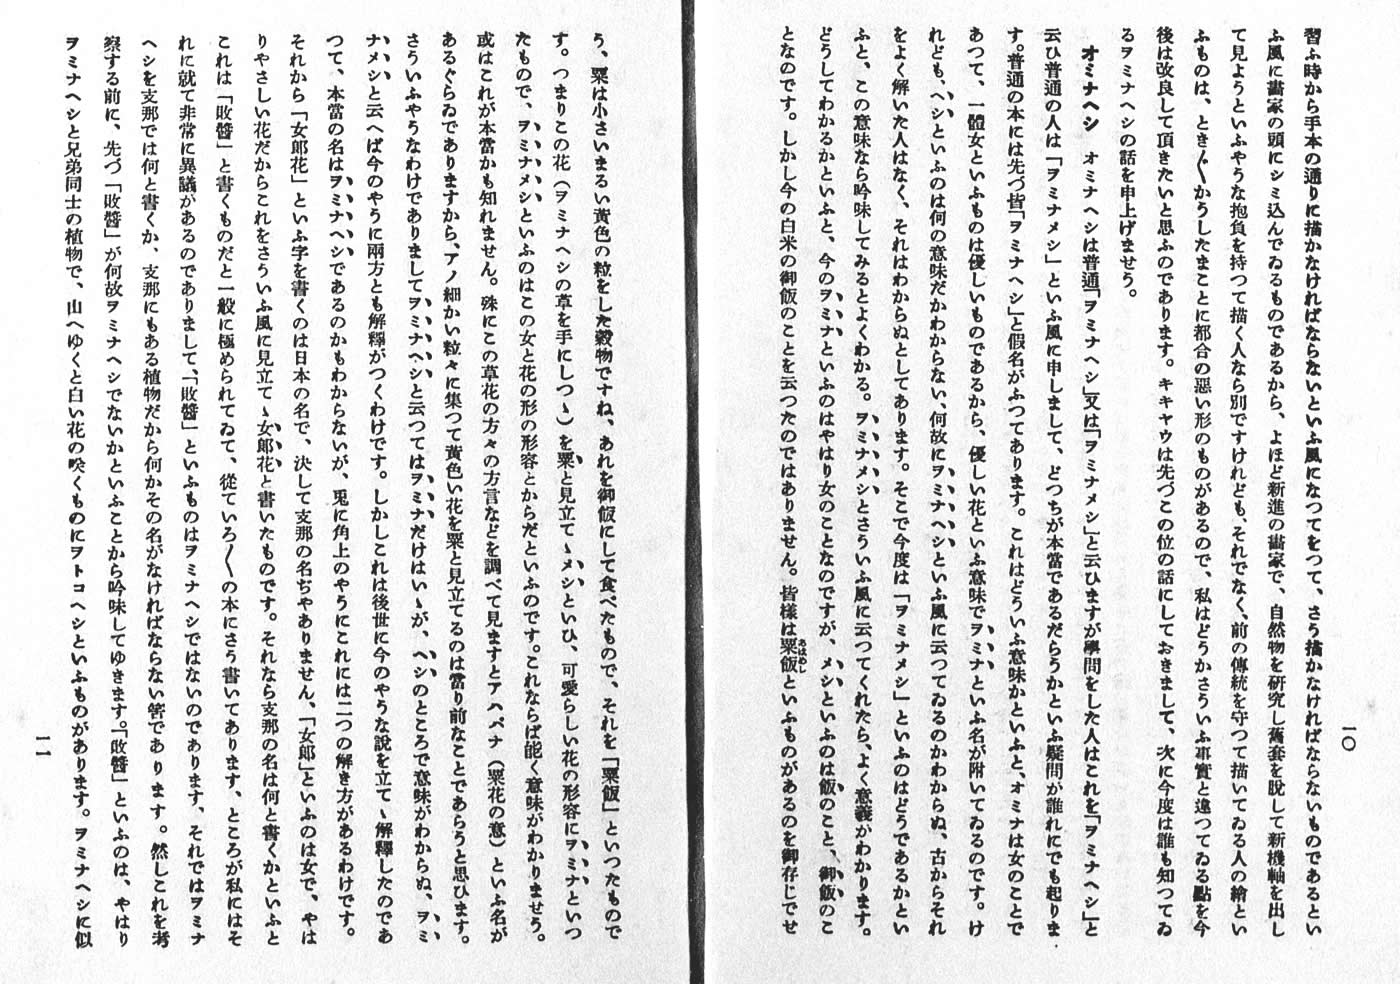 習ふ時から手本の通りに描かなければならないといふ風になつてをつて、さう描かなければならないものであるとい
ふ風に畵家の頭にシミ込んでゐるものであるから、よほど新進の畵家で、自然物を研究し舊套を脱して新機軸を出し
て見ようといふやうな抱負を持つて描く人なら別ですけれども、それでなく、前の傳統を守つて描いてゐる人の繪とい
ふものは、とき〲かうしたまことに都合の惡い形のものがあるので、私はどうかさういふ事實と違つてゐる點を今
後は改良して頂きたいと思ふのであります。キキヤウは先づこの位の話にしておきまして、次に今度は誰も知つてゐ
るヲミナヘシの話を申上げませう。
オミナヘシ　オミナヘシは普通「ヲミナヘシ」又は「ヲミナメシ」と云ひますが學問をした人はこれを「ヲミナヘシ」と
云ひ普通の人は「ヲミナメシ」といふ風に申しまして、どつちが本當であるだらうかといふ疑問が誰れにでも起りま
す。普通の本には先づ皆「ヲミナヘシ」と假名がふつてあります。これはどういふ意味かといふと、オミナは女のことで
あつて、一體女といふものは優しいものであるから、優しい花といふ意味でヲミナといふ名が附いてゐるのです。け
れども、ヘシといふのは何の意味だかわからない、何故にヲミナヘシといふ風に云つてゐるのかわからぬ、古からそれ
をよく解いた人はなく、それはわからぬとしてあります。そこで今度は「ヲミナメシ」といふのはどうであるかとい
ふと、この意味なら吟味してみるとよくわかる。ヲミナメシとさういふ風に云つてくれたら、よく意義がわかります。
どうしてわかるかといふと、今のヲミナといふのはやはり女のことなのですが、メシといふのは飯のこと、御飯のこ
となのです。しかし今の白米の御飯のことを云つたのではありません。皆樣は粟飯あはめしといふものがあるのを御存じでせ
一〇
う、粟は小さいまるい黄色の粒をした穀物ですね、あれを御飯にして食べたもので、それを「粟飯」といつたもので
す。つまりこの花（ヲミナヘシの草を手にしつゝ）を粟と見立てゝメシといひ、可愛らしい花の形容にヲミナといつ
たもので、ヲミナメシといふのはこの女と花の形の形容とからだといふのです。これならば能く意味がわかりませう。
或はこれが本當かも知れません。殊にこの草花の方々の方言などを調べて見ますとアハバナ（粟花の意）といふ名が
あるぐらゐでありますから、アノ細かい粒々に集つて黄色い花を粟と見立てるのは當り前なことであらうと思ひます。
さういふやうなわけでありましてヲミナヘシと云つてはヲミナだけはいゝが、ヘシのところで意味がわからぬ、ヲミ
ナメシと云へば今のやうに兩方とも解釋がつくわけです。しかしこれは後世に今のやうな說を立てゝ解釋したのであ
つて、本當の名はヲミナヘシであるのかもわからないが、兎に角上のやうにこれには二つの解き方があるわけです。
それから「女郎花」といふ字を書くのは日本の名で、決して支那の名ぢやありません、「女郎」といふのは女で、やは
りやさしい花だからこれをさういふ風に見立てゝ女郎花と書いたものです。それなら支那の名は何と書くかといふと
これは「敗醬」と書くものだと一般に極められてゐて、從ていろ〱の本にさう書いてあります、ところが私にはそ
れに就て非常に異議があるのでありまして、「敗醬」といふものはヲミナヘシではないのであります、それではヲミナ
ヘシを支那では何と書くか、支那にもある植物だから何かその名がなければならない筈であります。然しこれを考
察する前に、先づ「敗醬」が何故ヲミナヘシでないかといふことから吟味してゆきます。「敗醬」といふのは、やはり
ヲミナヘシと兄弟同士の植物で、山へゆくと白い花の咲くものにヲトコヘシといふものがあります。ヲミナヘシに似
一一